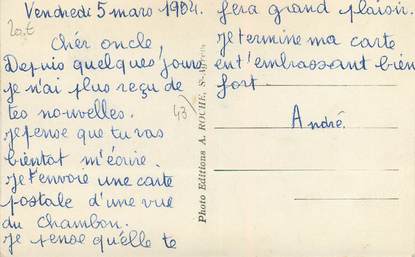 Vendredi 5 mars 1924.
Chér oncle,
Depuis quelques jours
je n'ai plus reçu de
tes nouvelles.
Je pense que tu vas
bientot m'écrire.
Je t'envoie une carte
postale d'une vue
du Chambon.
Je pense qu'elle te
fera grand plaisir.
Je termine ma carte
en t'embrassant bien
fort
André.
43
Photo Editions A. ROCHE,